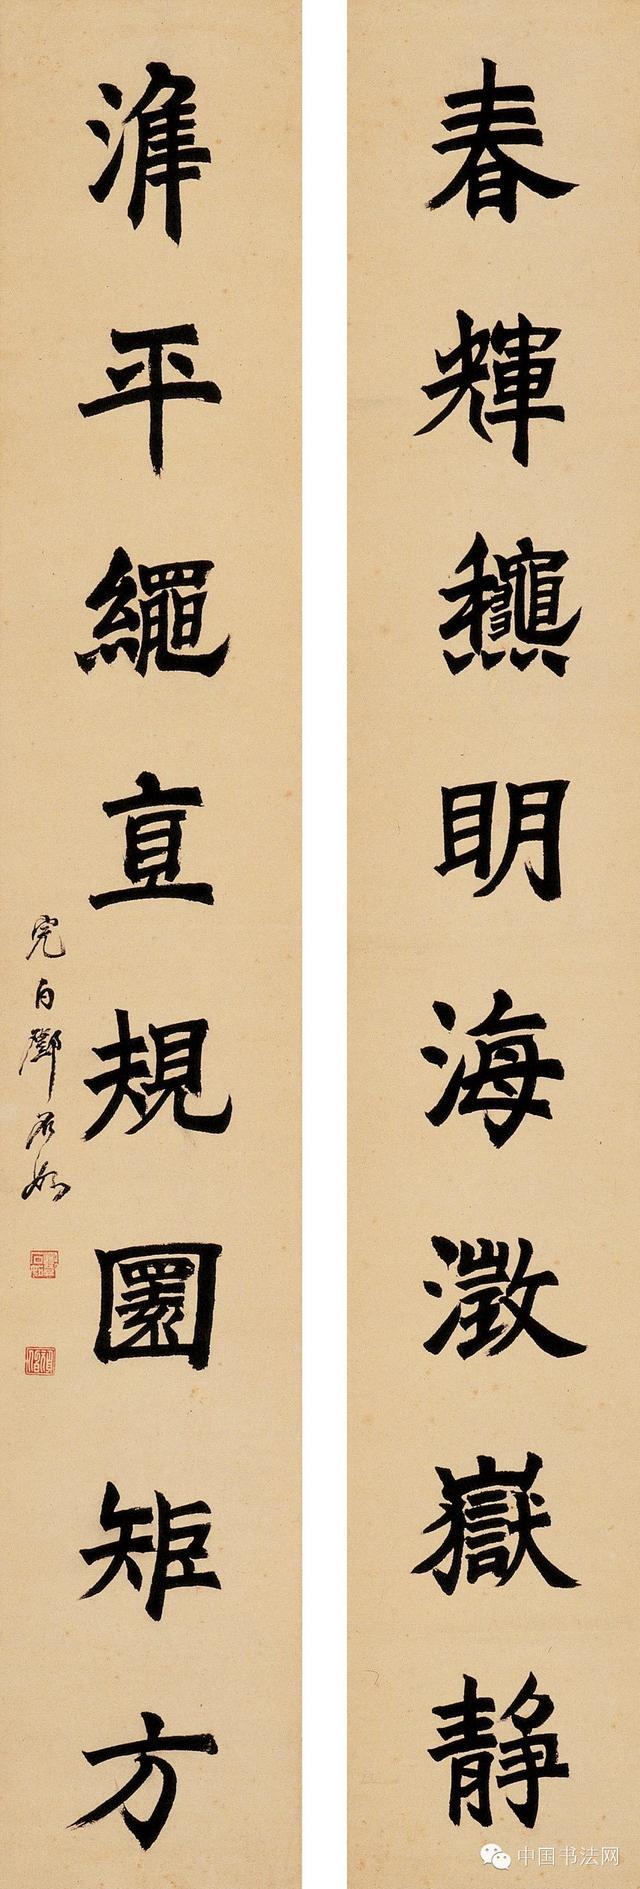 春輝龝明海澂嶽静
準平繩直規圜矩方
完白鄧石如
中国书法网